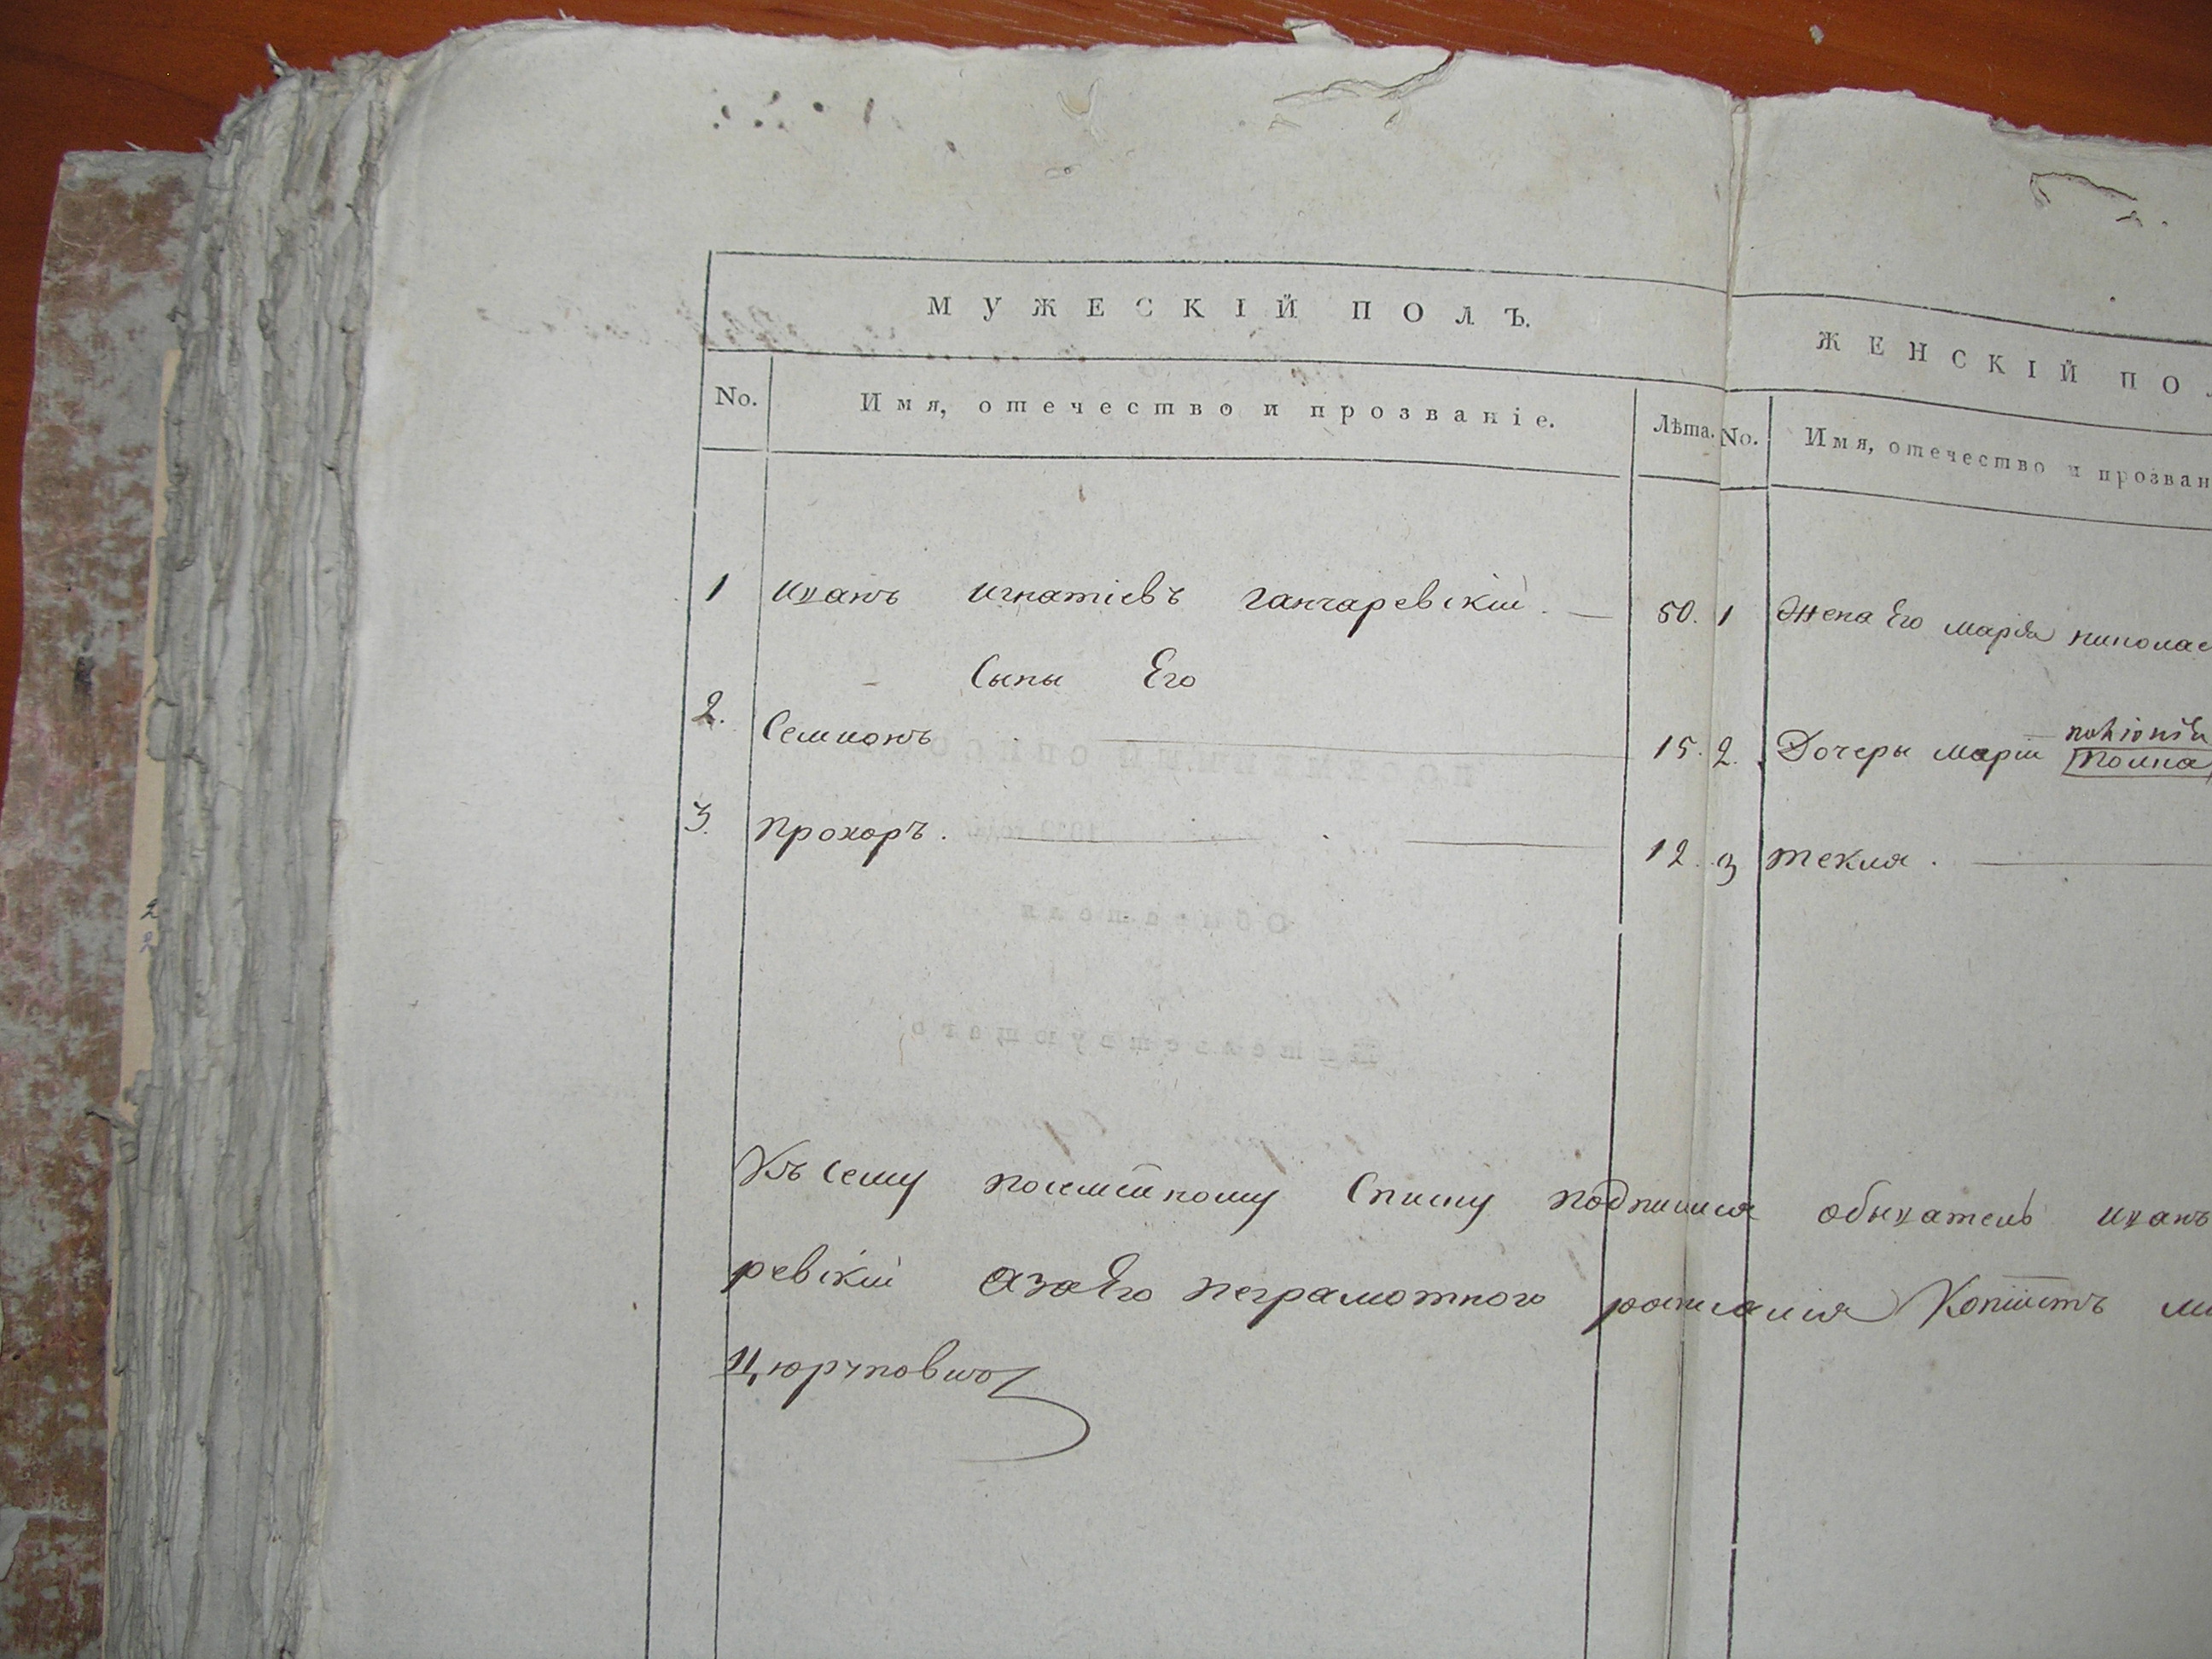 МУЖЕСКІЙ ПОЛЪ.
No. Имя, отечество и прозваніе. Лѣта.
1 Иванъ Игнатіевъ Ганчаревскій. — 50.
Сыны Его
2. Семионъ — 15.
3. Прохоръ. — 12.
ЖЕНСКІЙ ПО
No. Имя, отечество и прозван
1 Жена Его Марія
2. Дочеры Маріи
3 Текля. —
Къ сему посемейному списку подписался обыватель Иванъ
ревскій а за Его неграмотного росписался Копіистъ